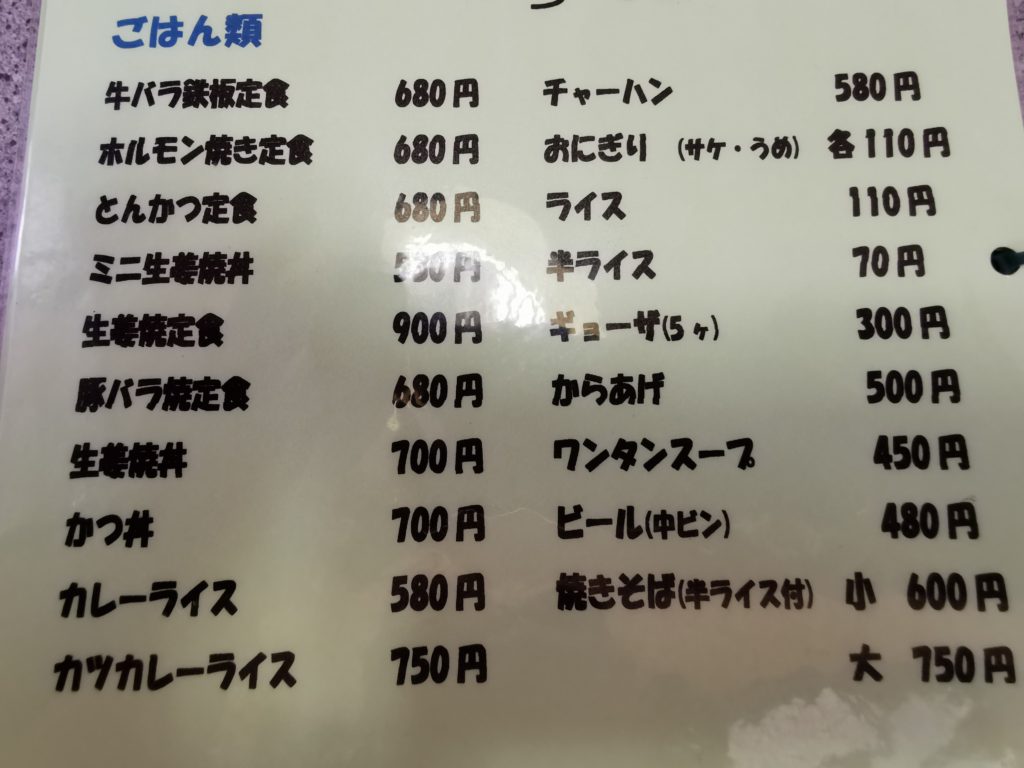 ごはん類
牛バラ鉄板定食 680円
ホルモン焼き定食 680円
とんかつ定食 680円
ミニ生姜焼丼
生姜焼定食 900円
豚バラ焼定食 680円
生姜焼丼 700円
かつ丼 700円
カレーライス 580円
カツカレーライス 750円
チャーハン 580円
おにぎり (サケ・うめ) 各110円
ライス 110円
半ライス 70円
ギョーザ(5ヶ) 300円
からあげ 500円
ワンタンスープ 450円
ビール(中ビン) 480円
焼きそば(半ライス付) 小 600円
大 750円